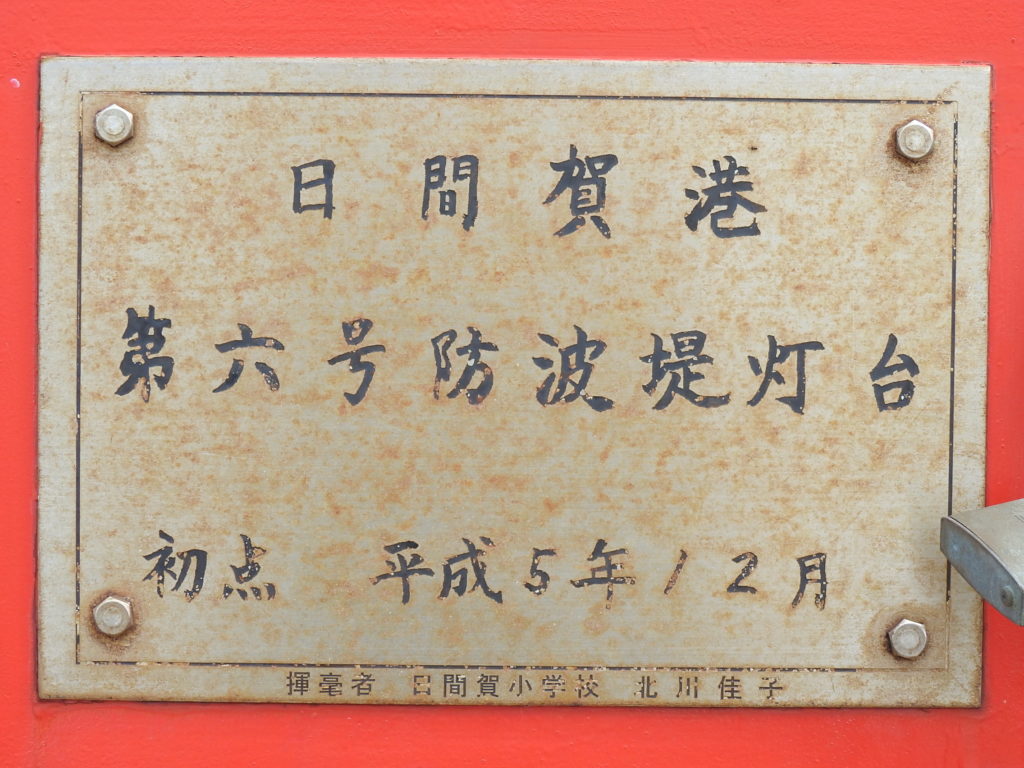 日間賀港
第六号防波堤灯台
初点 平成5年12月
揮毫者 日間賀小学校 北川佳子